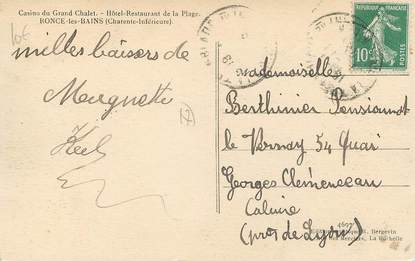 Casino du Grand Chalet. - Hôtel-Restaurant de la Plage.
RONCE-les-BAINS (Charente-Inférieure).
milles baisers de
Muguette
Mademoiselle
Berthinier Pensionnat
le Vernay 54 Quai
Georges Clémenceau
Caluire
(près de Lyon)
REPUBLIQUE FRANÇAISE
10c
POSTES
Bergevin
La Rochelle